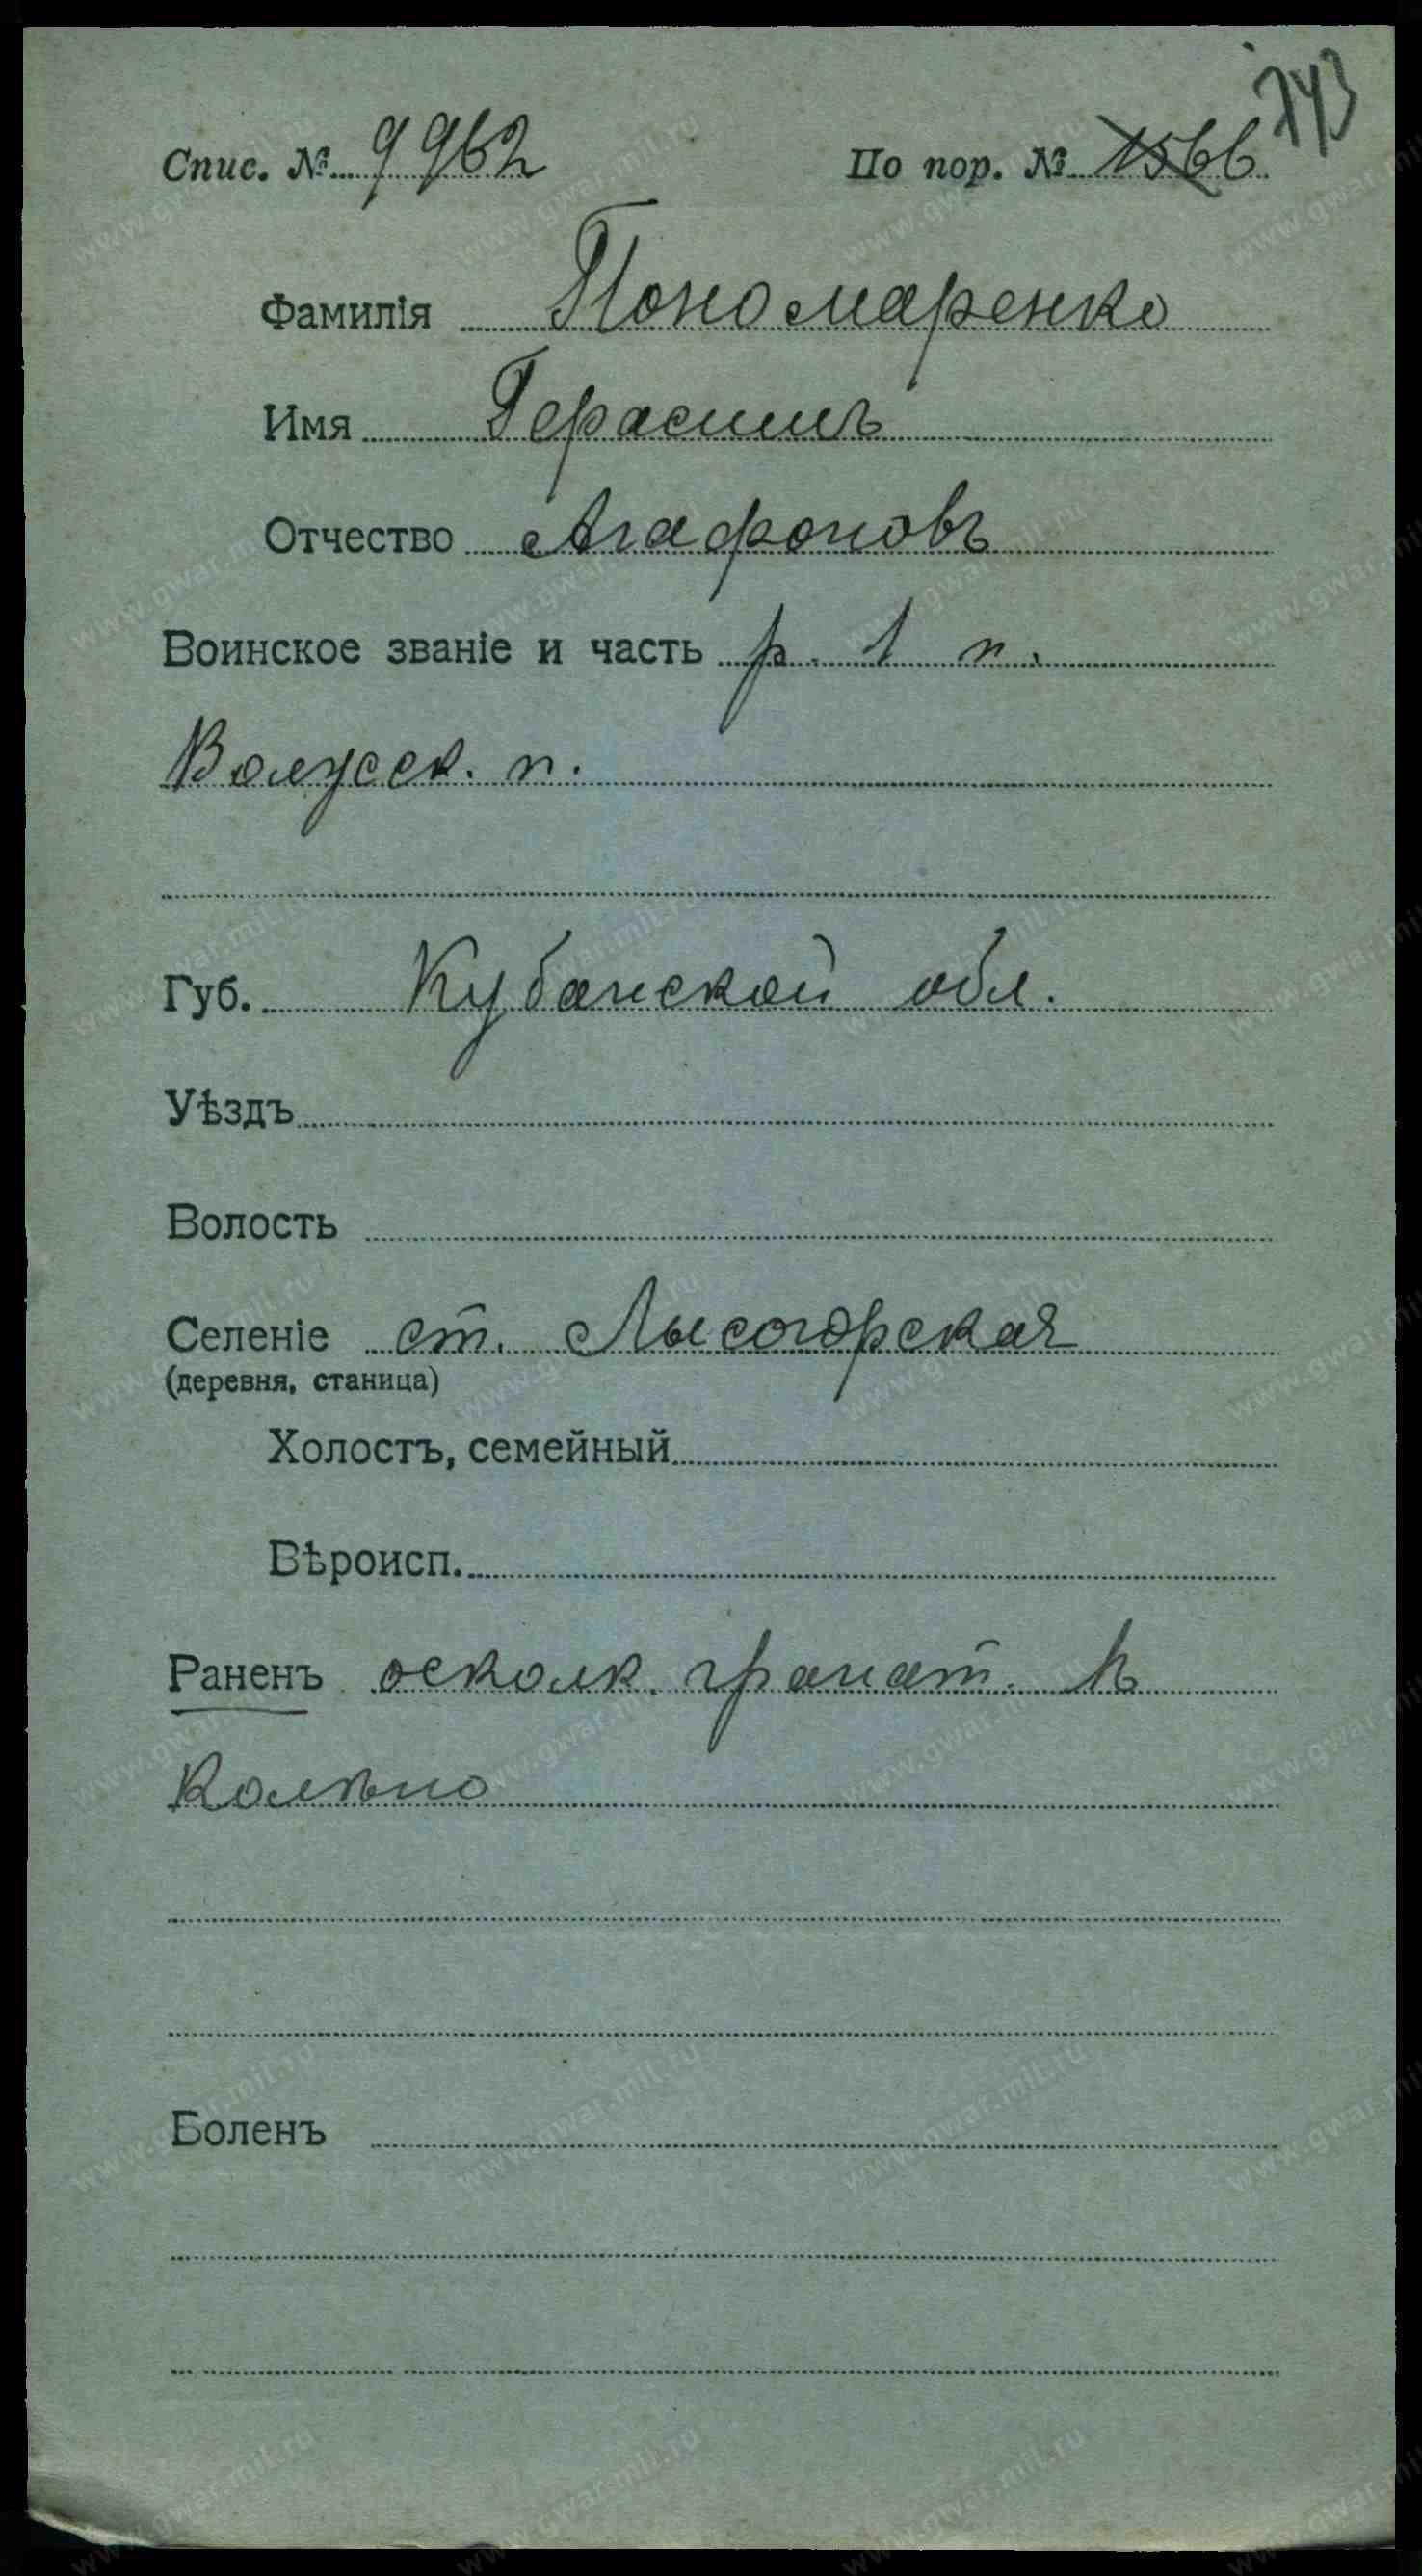 743
Спис. № 9962 По пор. № 1566
Фамилія Пономаренко
Имя Герасимъ
Отчество Агафоновъ
Воинское званіе и часть р. 1 п.
п.
Губ. Кубанской обл.
Уѣздъ
Волость
Селеніе ст. Лысогорская
(деревня, станица)
Холостъ, семейный
Вѣроисп.
Раненъ осколк. гранат. въ
колѣно
Боленъ